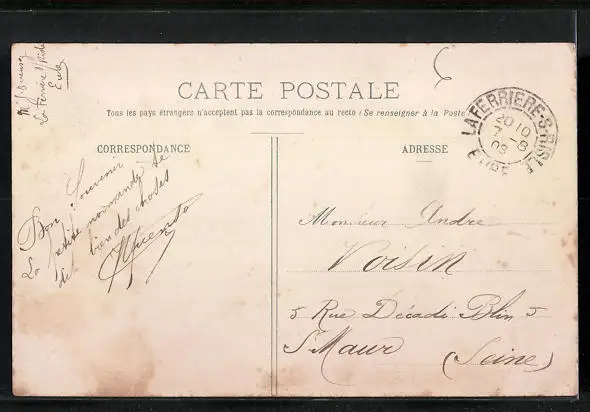 La Ferrière s/ Risle
Eure
CARTE POSTALE
Tous les pays étrangers n'acceptent pas la correspondance au recto (Se renseigner à la Poste
CORRESPONDANCE
ADRESSE
LA FERRIERE-S-RISLE
20 10
7 -8
08
EURE
Bon Souvenir
La petite normande te
dit bien des choses
Monsieur Andre
Voisin
5 Rue Décadi Blin 5
St Maur (Seine)